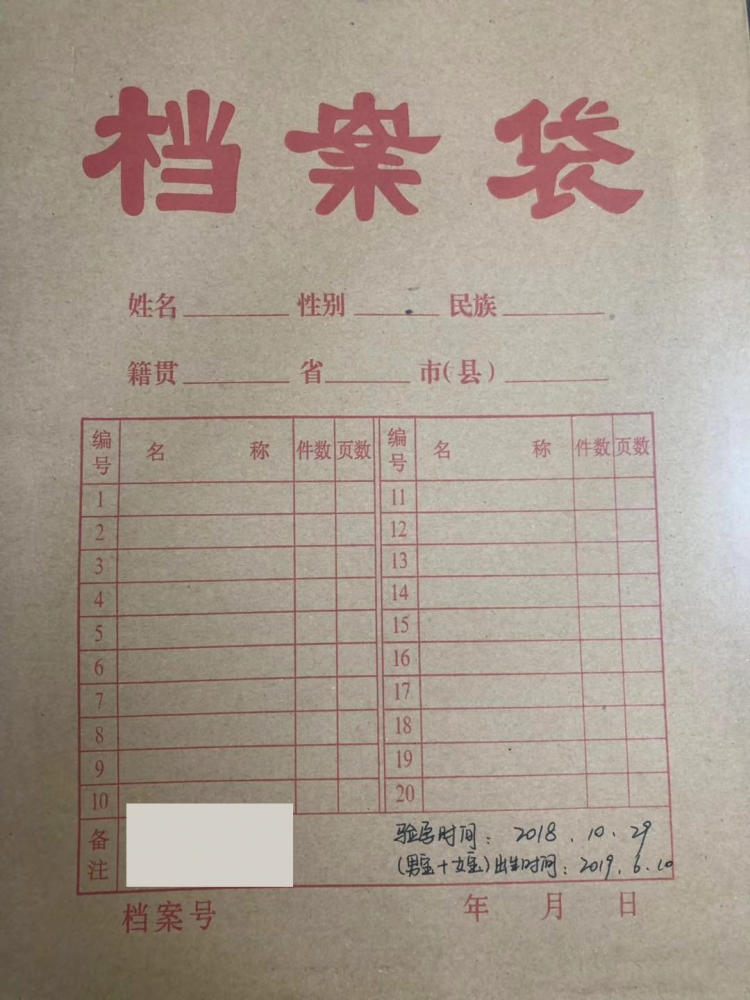 档案袋
姓名 性别 民族
籍贯 省 市(县)
编号 名 称 件数 页数 编号 名 称 件数 页数
1 11
2 12
3 13
4 14
5 15
6 16
7 17
8 18
9 19
10 20
备注 验孕时间：2018.10.29
(男宝+女宝)出生时间：2019.6.10
档案号 年 月 日